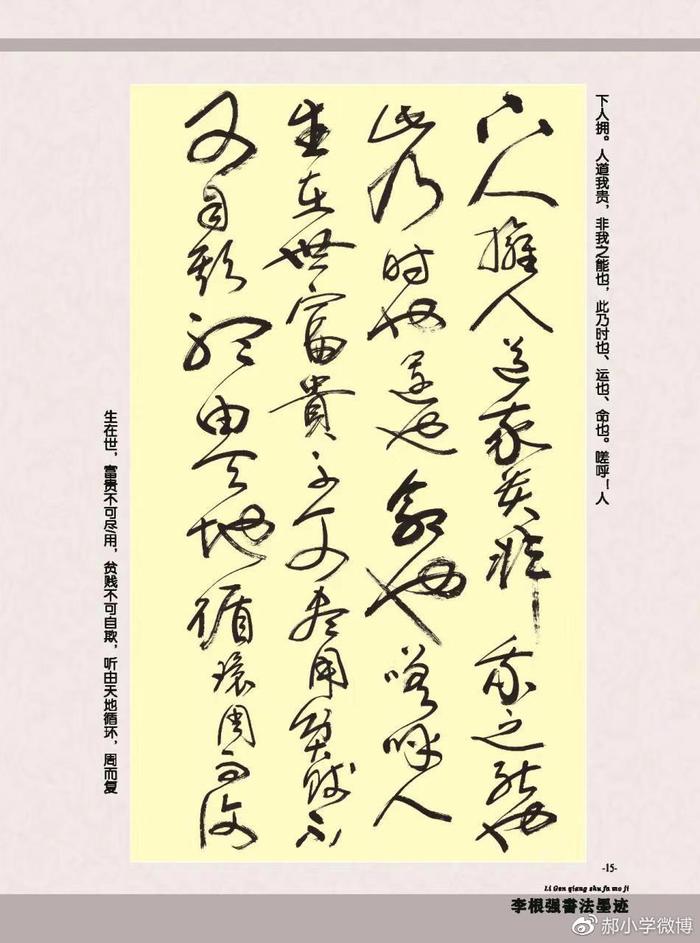 下人拥。人道我贵，非我之能也，此乃时也、运也、命也。嗟呼！人
下人擁人道我貴非我之能也
此乃时也運也命也嗟呼人
生在世富貴不可盡用貧賤不
可自欺聽由天地循環周而復
生在世，富贵不可尽用，贫贱不可自欺，听由天地循环，周而复
-15-
Li Gen qiang shu fa mo ji
李根强書法墨迹
郝小学微博